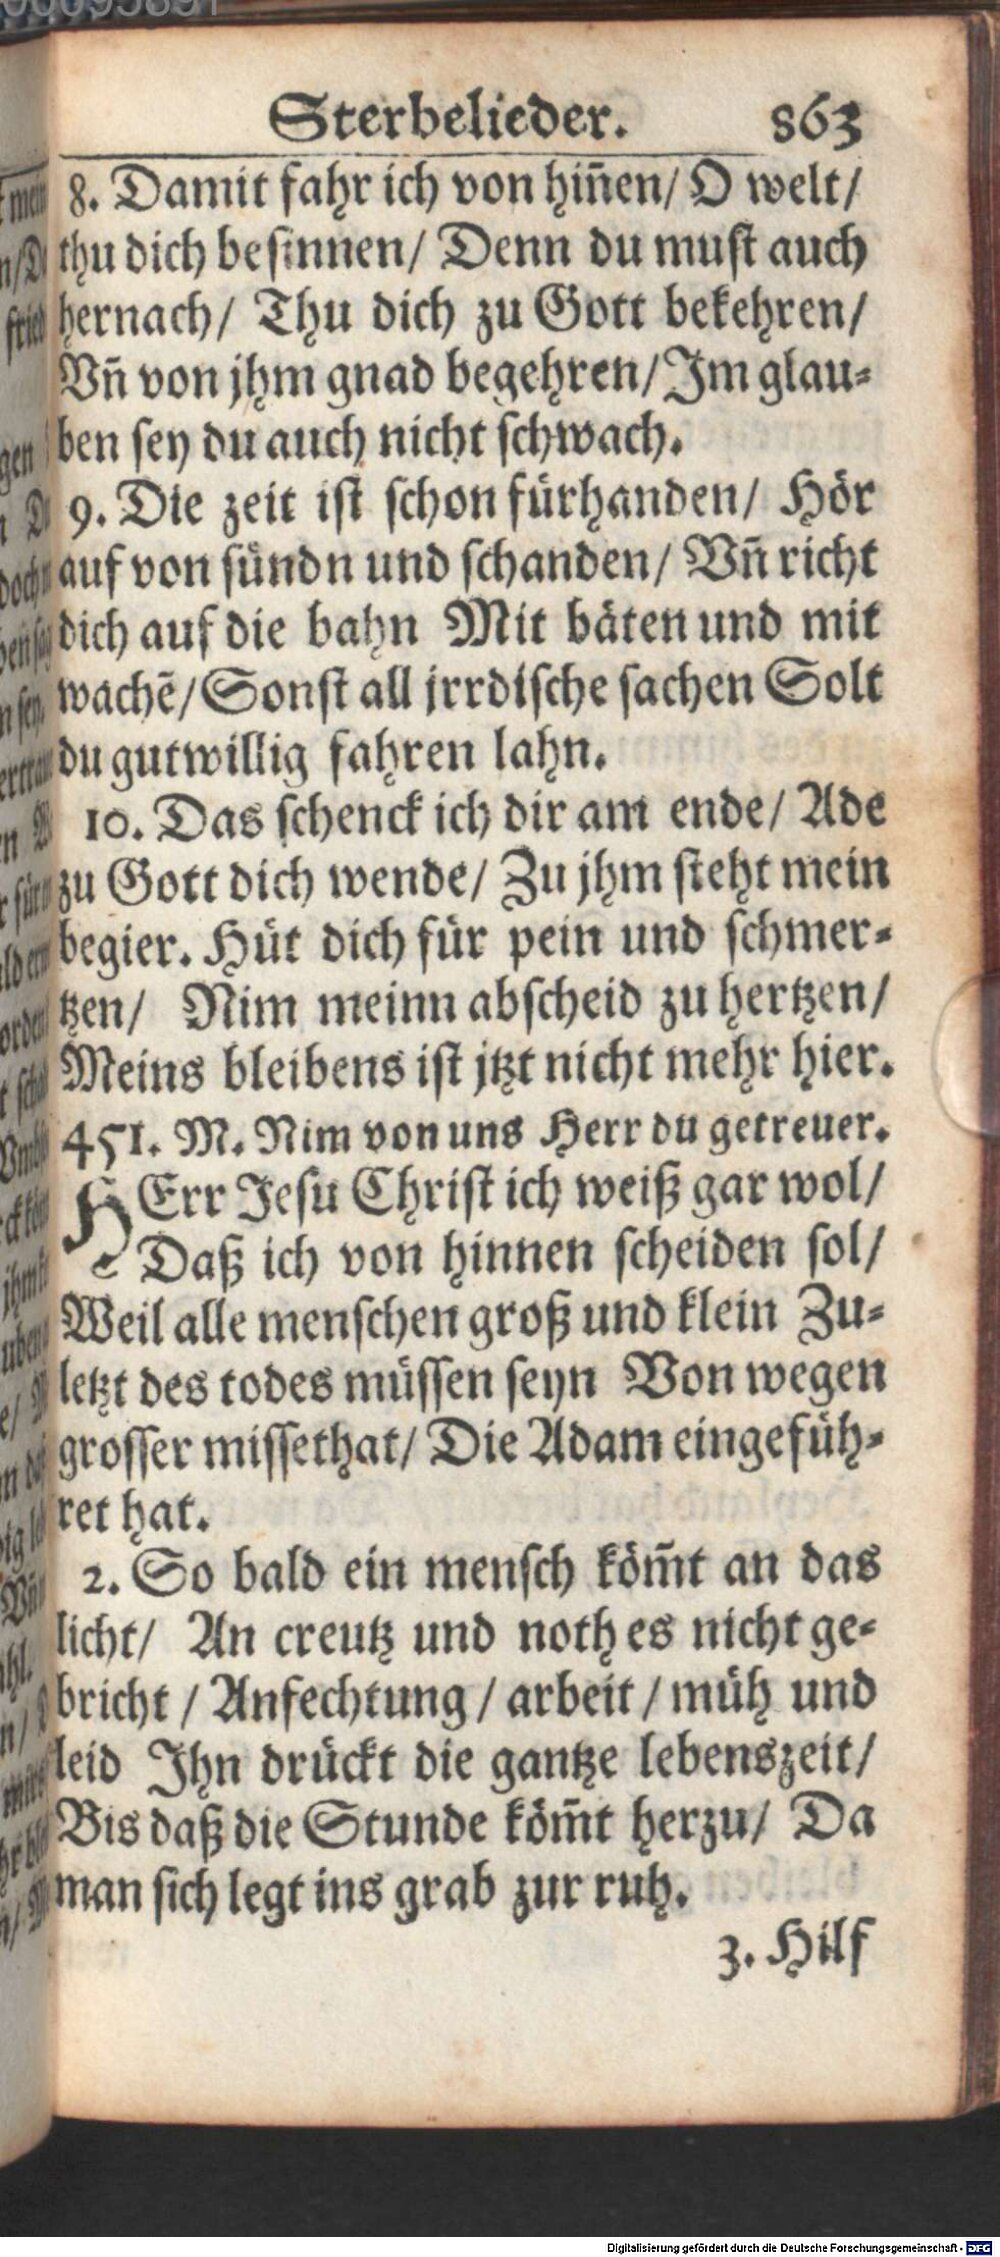 Sterbelieder. 863
8. Damit fahr ich von hiñen/ O welt/
thu dich besinnen/ Denn du must auch
hernach/ Thu dich zu Gott bekehren/
Vñ von jhm gnad begehren/ Im glau-
ben sey du auch nicht schwach.
9. Die zeit ist schon fürhanden/ Hör
auf von sündn und schanden/ Vñ richt
dich auf die bahn Mit bäten und mit
wachẽ/ Sonst all jrrdische sachen Solt
du gutwillig fahren lahn.
10. Das schenck ich dir am ende/ Ade
zu Gott dich wende/ Zu jhm steht mein
begier. Hüt dich für pein und schmer-
tzen/ Nim meinn abscheid zu hertzen/
Meins bleibens ist jtzt nicht mehr hier.
451. M. Nim von uns Herr du getreuer.
HErr Jesu Christ ich weiß gar wol/
Daß ich von hinnen scheiden sol/
Weil alle menschen groß und klein Zu-
letzt des todes müssen seyn Von wegen
grosser missethat/ Die Adam eingefüh-
ret hat.
2. So bald ein mensch köm̃t an das
licht/ An creutz und noth es nicht ge-
bricht / Anfechtung / arbeit / müh und
leid Ihn drückt die gantze lebenszeit/
Bis daß die Stunde köm̃t herzu/ Da
man sich legt ins grab zur ruh.
3. Hilf
Digitalisierung gefördert durch die Deutsche Forschungsgemeinschaft - DFG